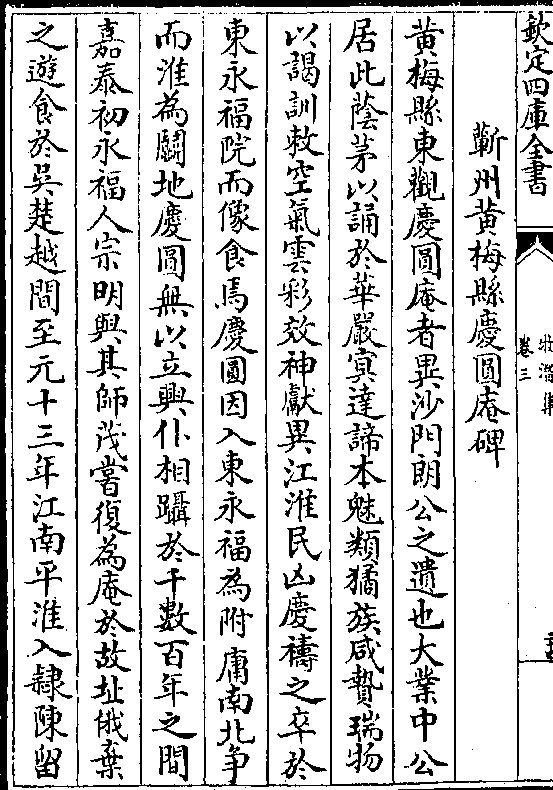 欽定四庫全書
牧潛集
卷三
蘄州黄梅縣慶圓庵碑
黄梅縣東觀慶圓庵者異沙門朗公之遺也大業中公
居此蔭茅以誦於華嚴寘達諦本魅類獝族咸贄瑞物
以謁訓敕空氣雲彩效神獻異江淮民凶慶禱之卒於
東永福院而像食焉慶圓因入東永福為附庸南北争
而淮為鬭地慶圓無以立興仆相躡於千數百年之間
嘉泰初永福人宗明與其師茂嘗復為庵於故址俄棄
之遊食於吳楚越間至元十三年江南平淮入隸陳留